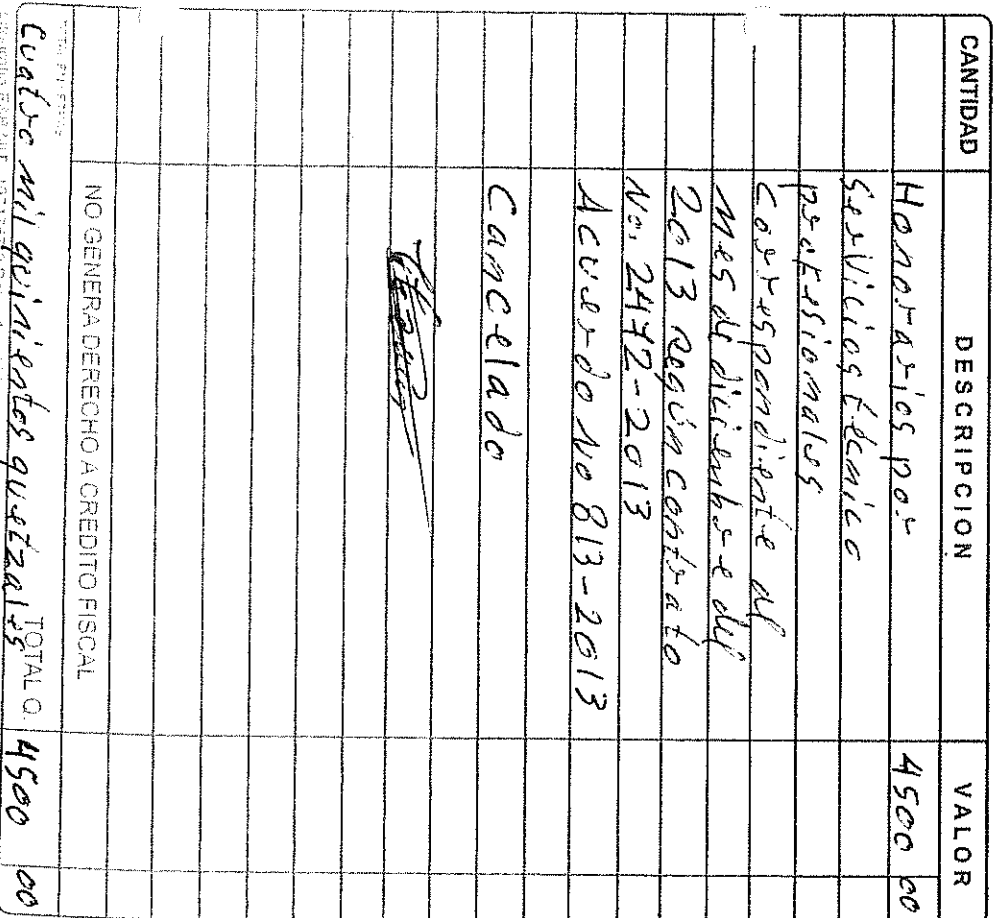 CANTIDAD DESCRIPCION VALOR
Honorarios por 4500 00
Servicios técnico
profesionales
Correspondiente al
Mes de diciembre del
2013 según contrato
No. 2472-2013
Acuerdo No 813-2013
Cancelado
NO GENERA DERECHO A CREDITO FISCAL
Cuatro mil quinientos quetzales TOTAL Q. 4500 00